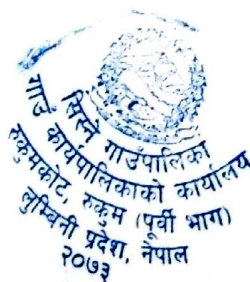 सिस्ने गाउँपालिका
गाउँ कार्यपालिकाको कार्यालय
रुकुमकोट, रुकुम (पूर्वी भाग)
लुम्बिनी प्रदेश, नेपाल
२०७३